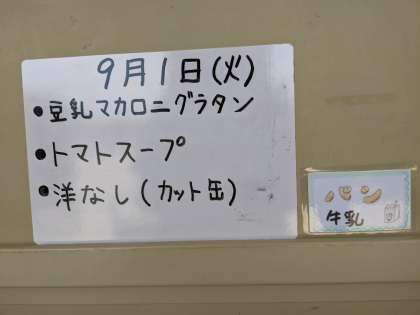 9月1日(火)
●豆乳マカロニグラタン
●トマトスープ
●洋なし(カット缶)
パン
牛乳